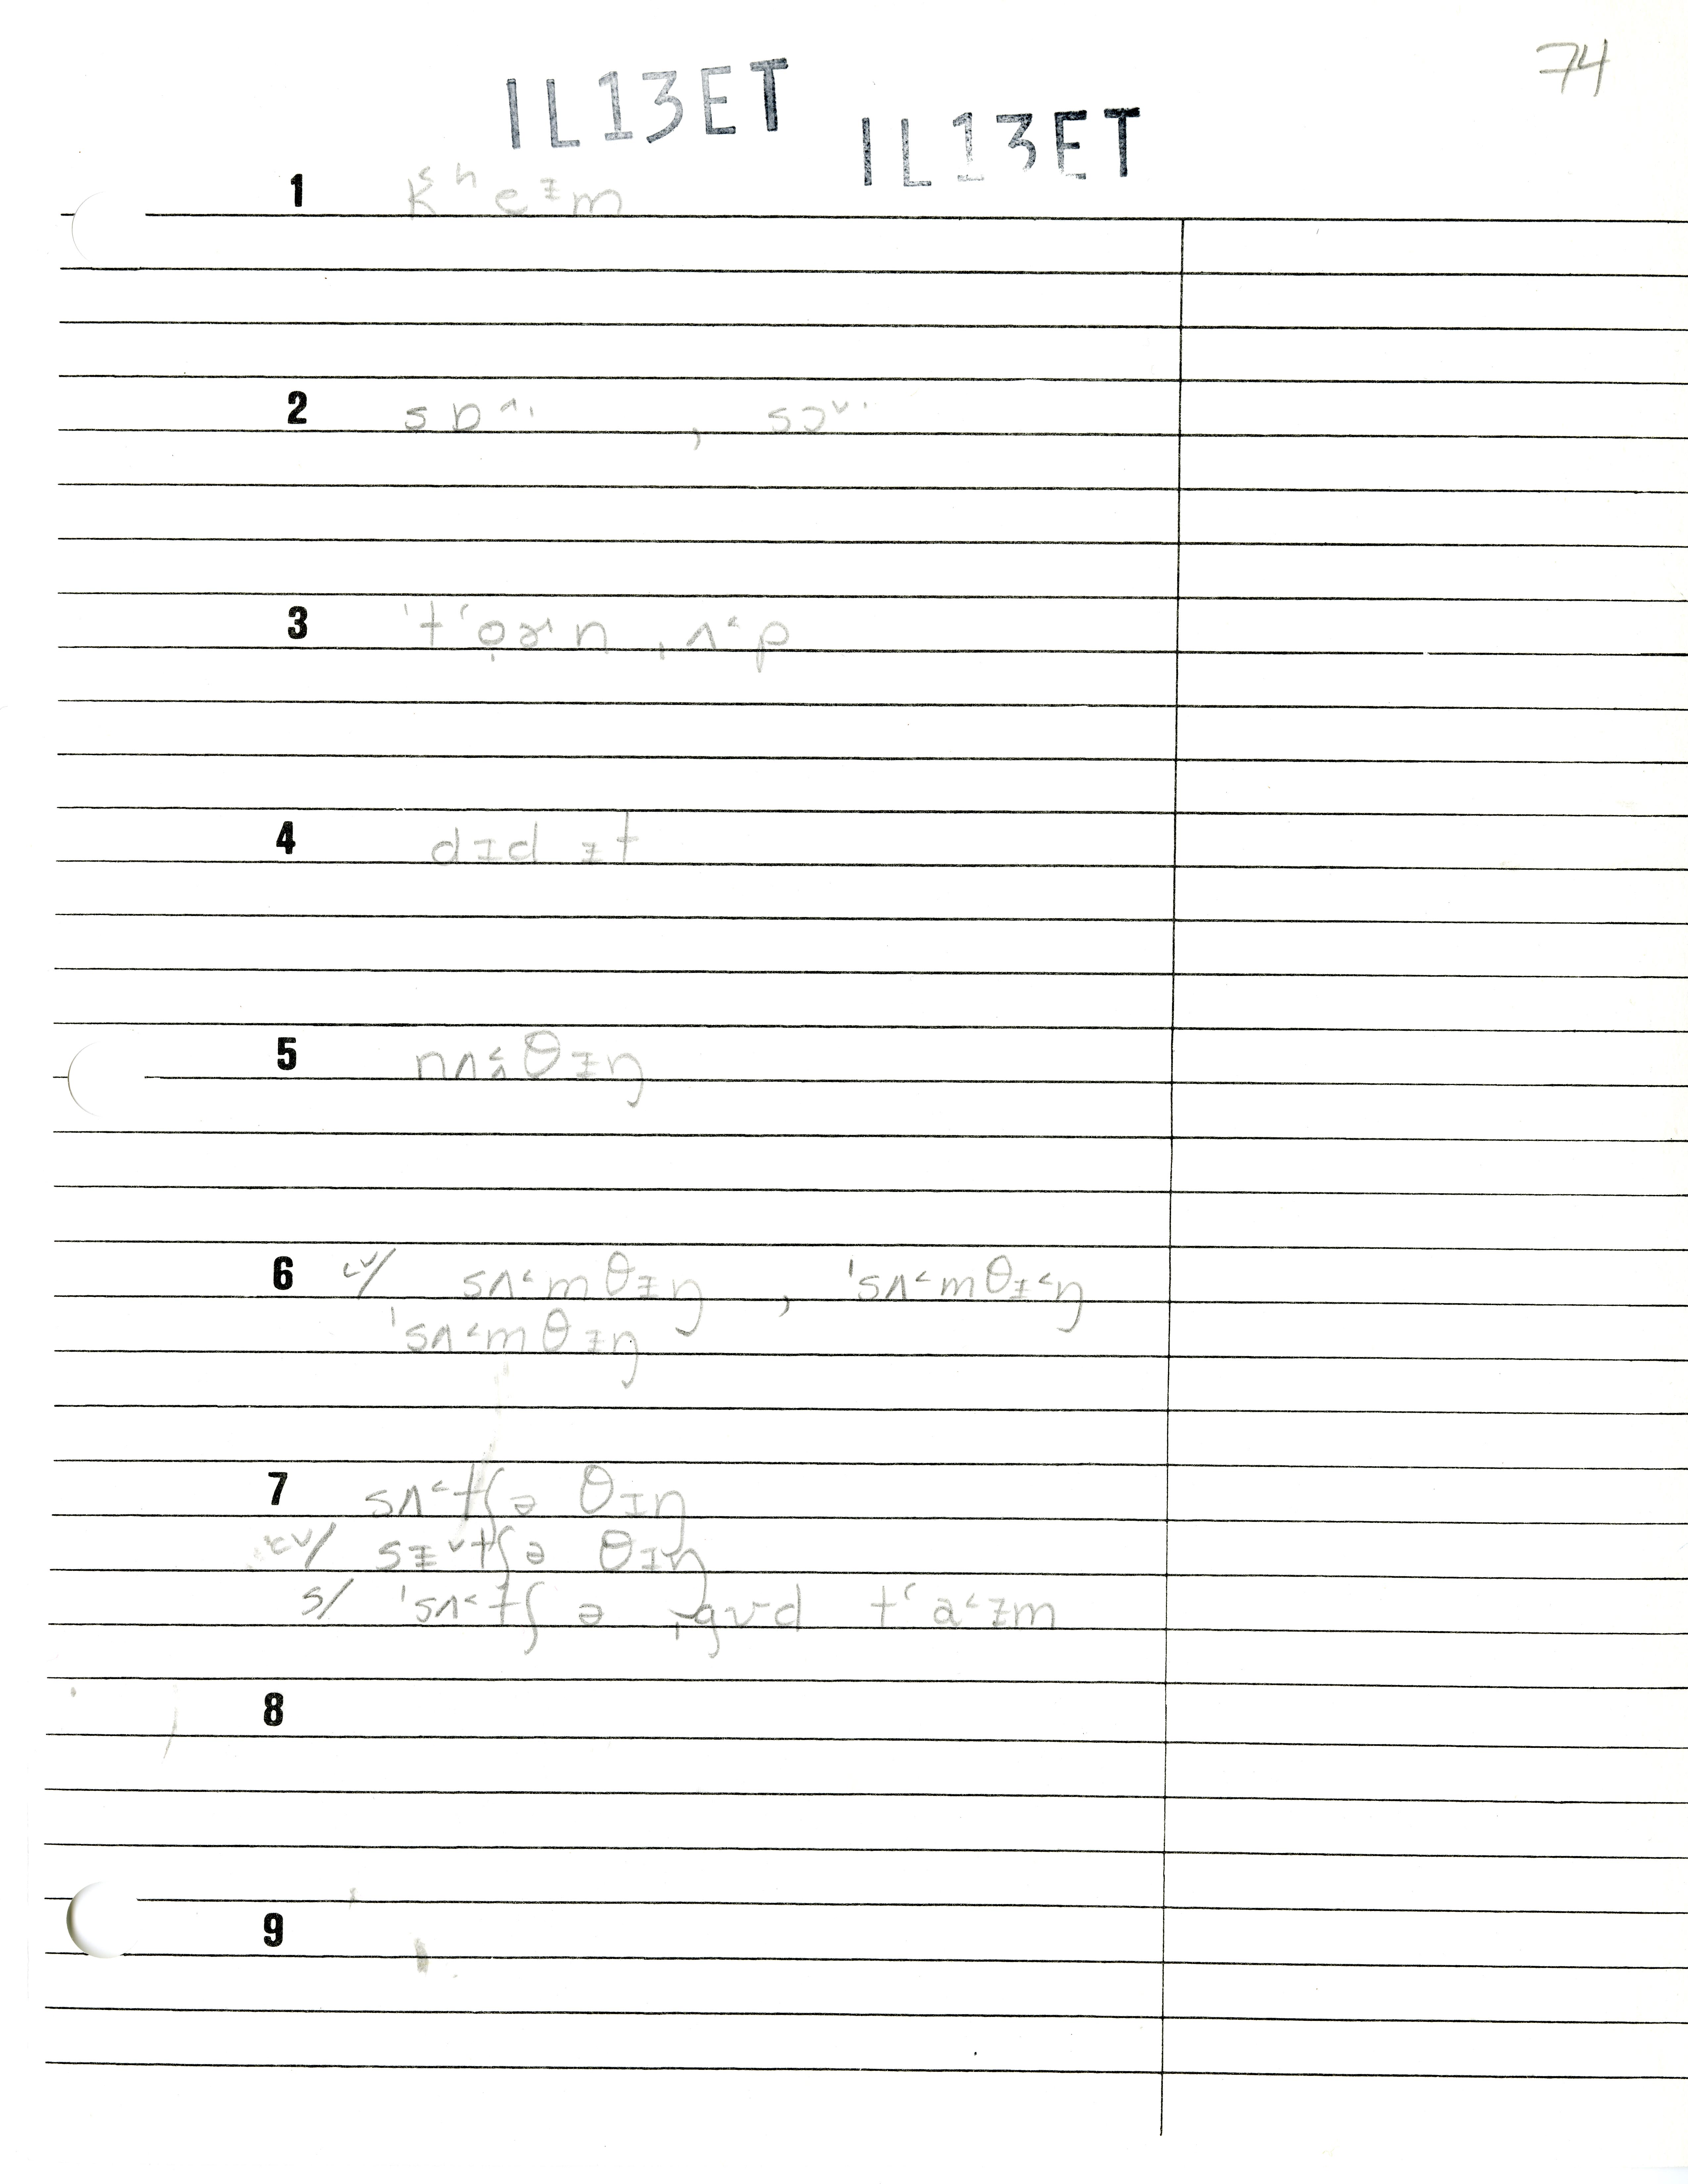 74
IL13ET
IL13ET
1 k̔ʰeᵻm
2 sɒ^ˑ, sɔ˅ˑ
3 ˈtʻo̩ɚn ˌʌ˂p
4 dɪd ɪt
5 nʌ˂θɪŋ
6 cv/ sʌ˂mθɪŋ, ˈsʌ˂mθɪ˂ŋ
ˈsʌ˂mθɪŋ
7 sʌ˂tʃə θɪŋ
cv/ sɪ˅tʃə θɪŋ
s/ ˈsʌ˂tʃ ə ˌgʊd tʻa˂ɪm
8
9